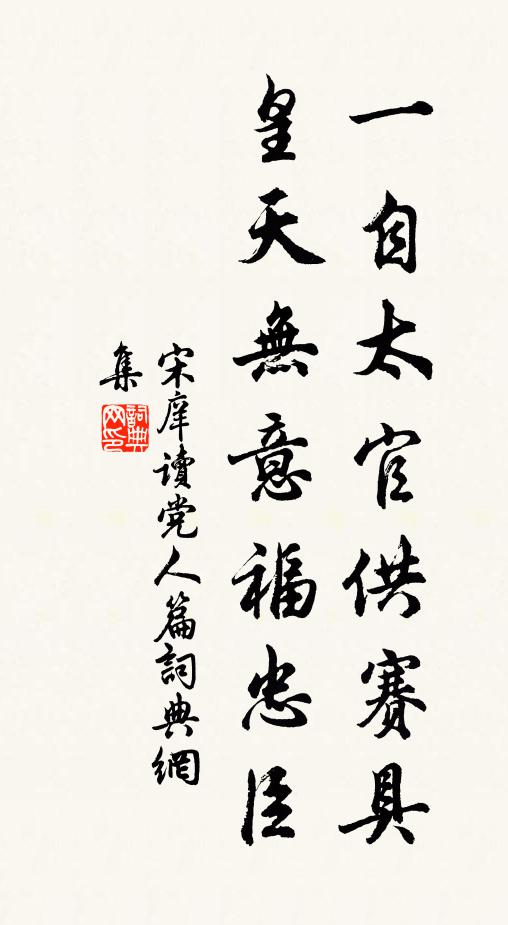 一自太官供賽具
皇天無意福忠臣
宋庠讀党人篇詞典網
集
詞典网印